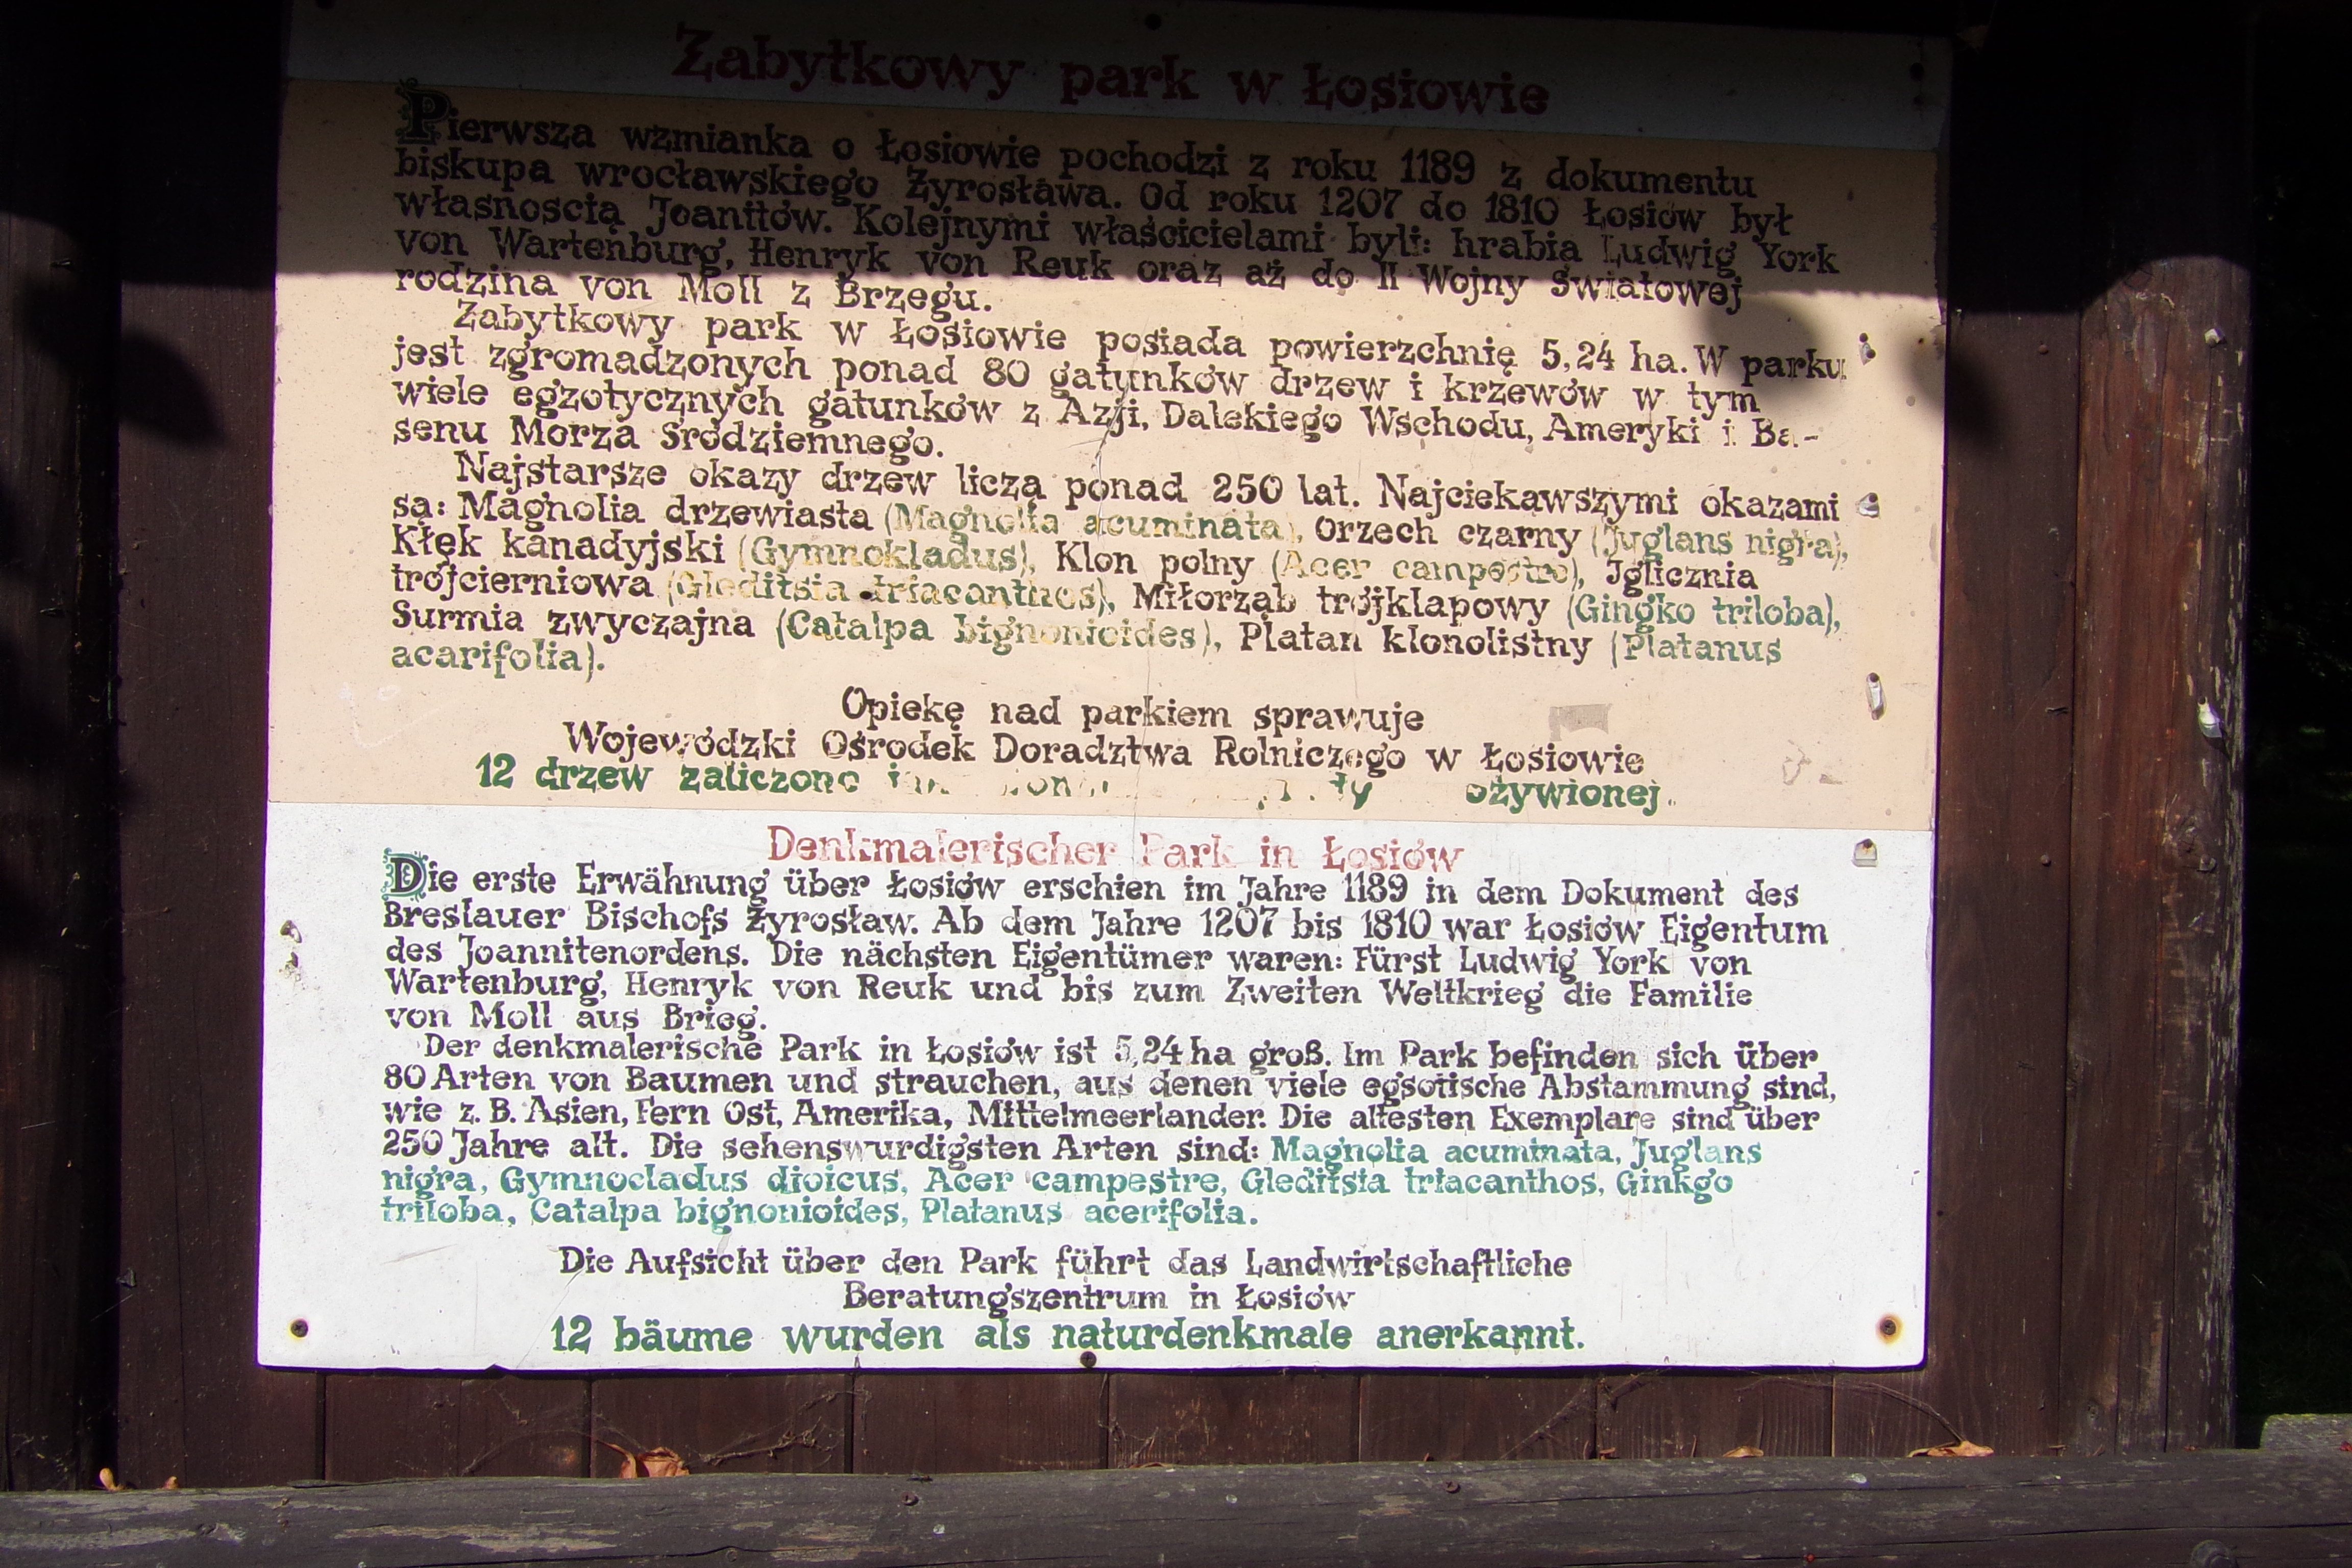 Zabytkowy park w Łosiowie
Pierwsza wzmianka o Łosiowie pochodzi z roku 1189 z dokumentu
biskupa wrocławskiego Żyrosława. Od roku 1207 do 1810 Łosiów był
własnoscią Joanitów. Kolejnymi właścicielami byli: hrabia Ludwig York
von Wartenburg, Henryk von Reuk oraz aż do II Wojny Światowej
rodzina von Moll z Brzegu.
Zabytkowy park w Łosiowie posiada powierzchnię 5,24 ha. W parku
jest zgromadzonych ponad 80 gatunków drzew i krzewów w tym
wiele egzotycznych gatunków z Azji, Dalekiego Wschodu, Ameryki i Ba-
senu Morza Śródziemnego.
Najstarsze okazy drzew liczą ponad 250 lat. Najciekawszymi okazami
są: Magnolia drzewiasta (Magnolia acuminata), Orzech czarny (Juglans nigra),
Kłęk kanadyjski (Gymnokladus), Klon polny (Acer campestre), Iglicznia
trójcierniowa (Gleditsia triacanthos), Miłorząb trójklapowy (Gingko triloba),
Surmia zwyczajna (Catalpa bignonioides), Platan klonolistny (Platanus
acarifolia).
Opiekę nad parkiem sprawuje
Wojewódzki Ośrodek Doradztwa Rolniczego w Łosiowie
12 drzew zaliczono ożywionej.
Denkmalerischer Park in Łosiów
Die erste Erwähnung über Łosiów erschien im Jahre 1189 in dem Dokument des
Breslauer Bischofs Żyrosław. Ab dem Jahre 1207 bis 1810 war Łosiów Eigentum
des Joannitenordens. Die nächsten Eigentümer waren: Fürst Ludwig York von
Wartenburg, Henryk von Reuk und bis zum Zweiten Weltkrieg die Familie
von Moll aus Brieg.
Der denkmalerische Park in Łosiów ist 5,24 ha groß. Im Park befinden sich über
80 Arten von Baumen und strauchen, aus denen viele egsotische Abstammung sind,
wie z. B. Asien, Fern Ost, Amerika, Mittelmeerlander. Die altesten Exemplare sind über
250 Jahre alt. Die sehenswurdigsten Arten sind: Magnolia acuminata, Juglans
nigra, Gymnocladus dioicus, Acer campestre, Gleditsia triacanthos, Ginkgo
triloba, Catalpa bignonioides, Platanus acerifolia.
Die Aufsicht über den Park führt das Landwirtschaftliche
Beratungszentrum in Łosiów
12 bäume wurden als naturdenkmale anerkannt.